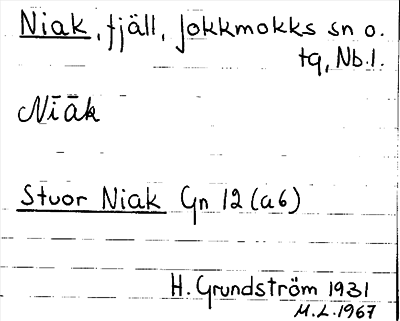 Niak, fjäll, Jokkmokks sn o.
tg, Nb.l.
Nīāk
Stuor Niak Gn 12 (a6)
H. Grundström 1931
M.L. 1967